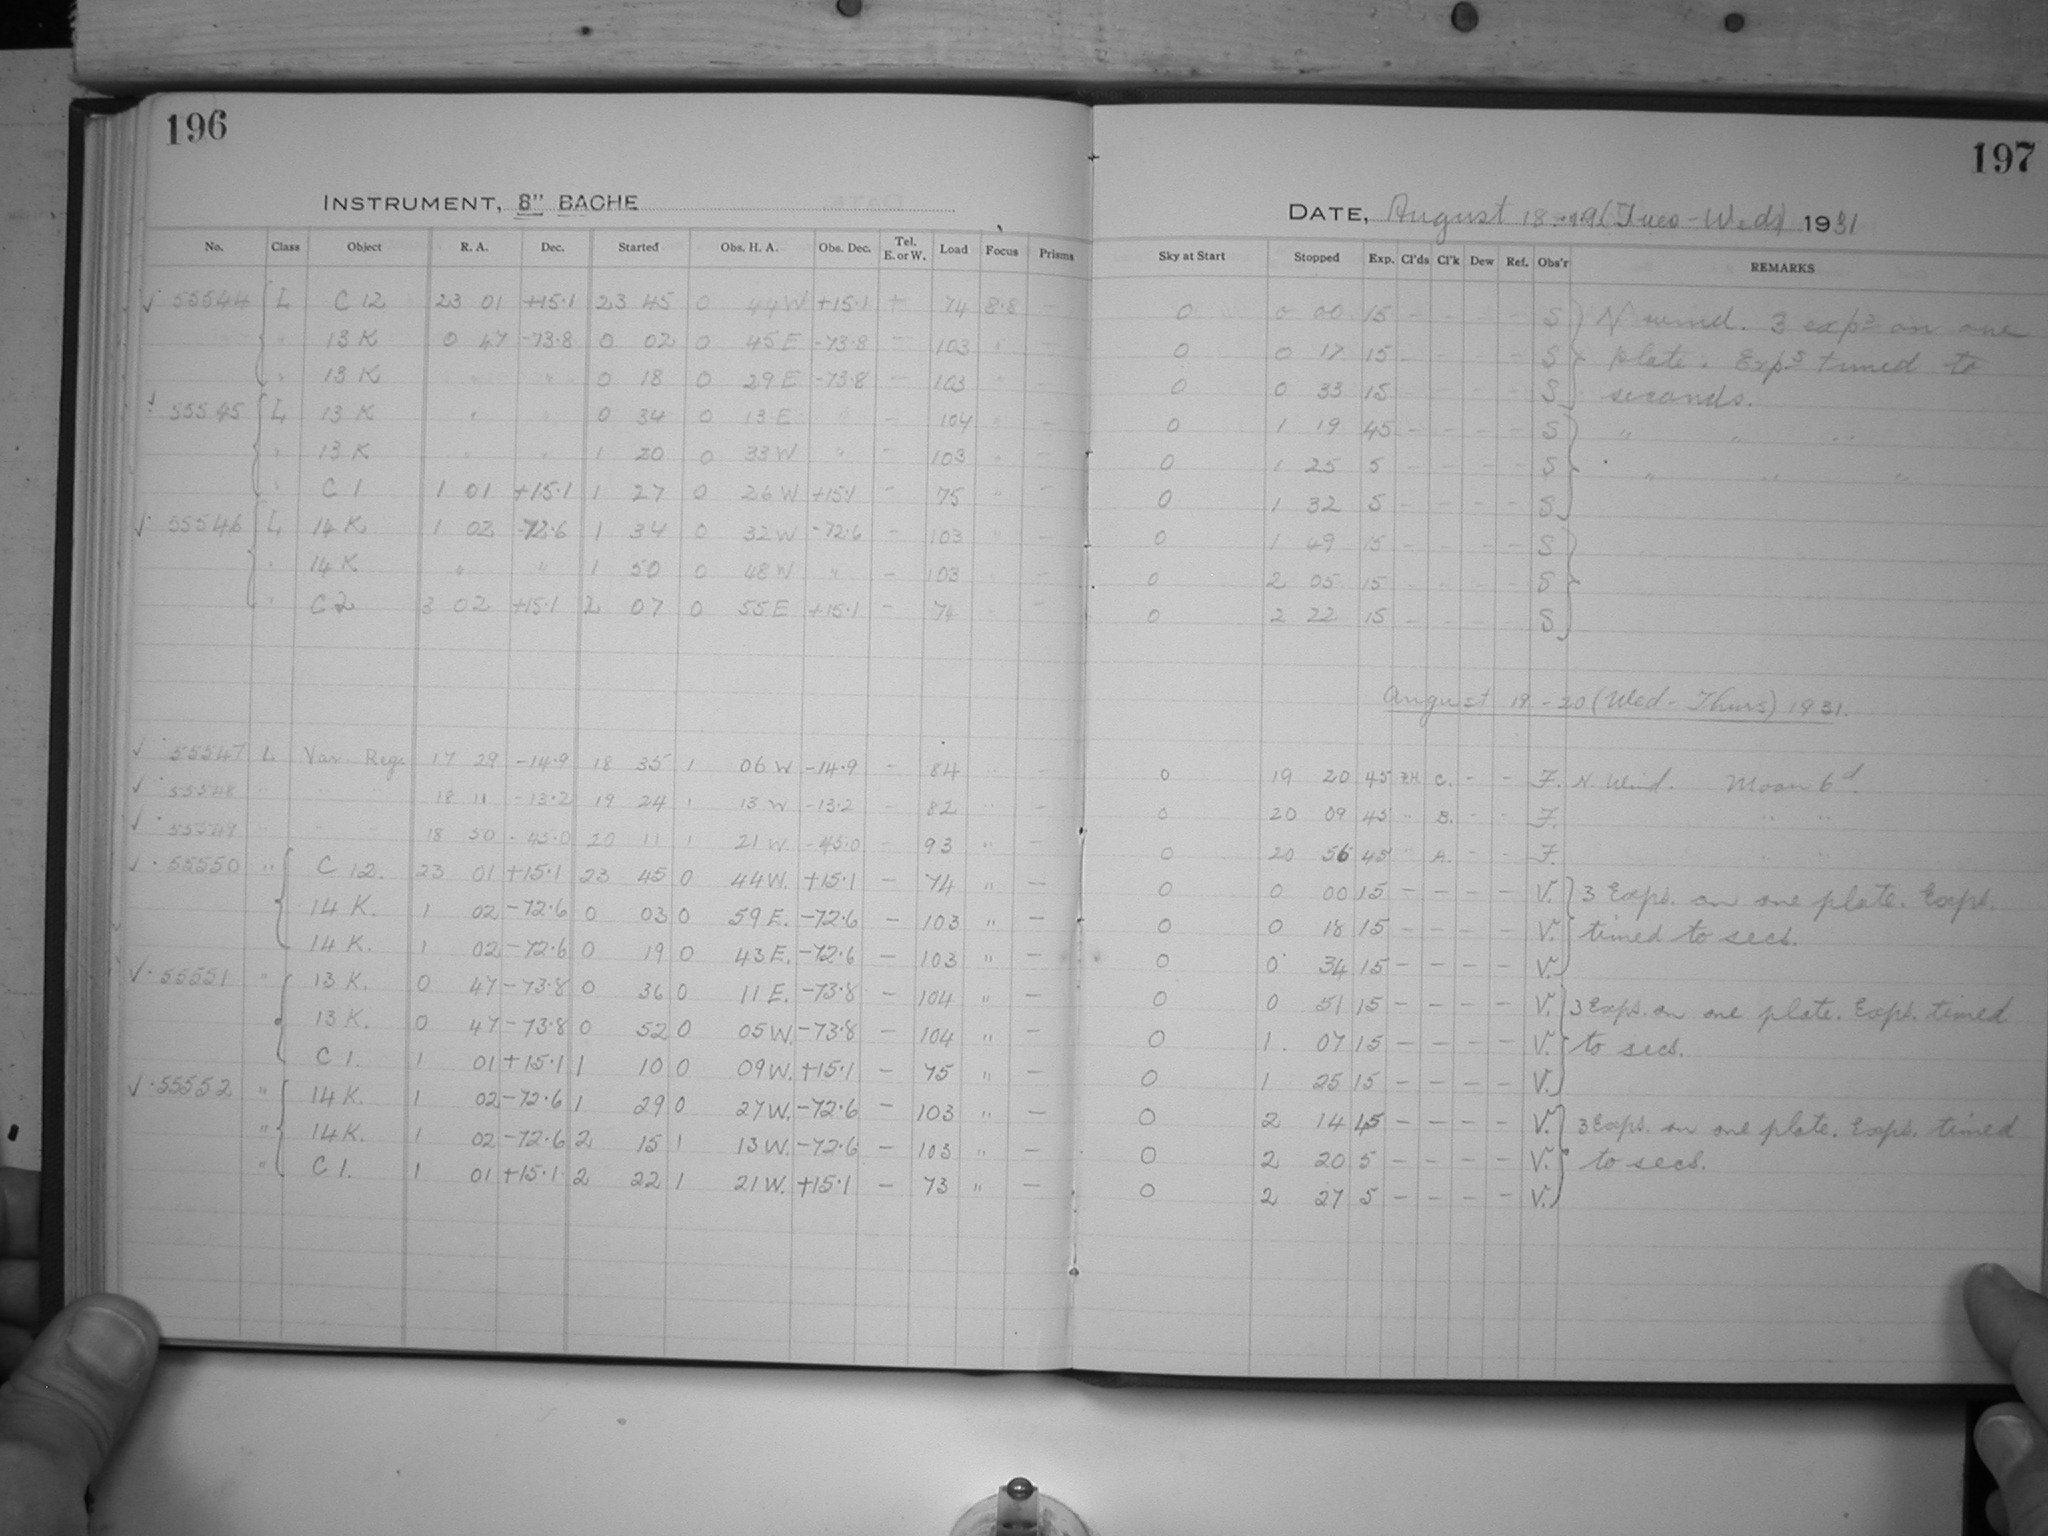 196
197
INSTRUMENT, 8" BACHE
DATE, August 18-19 (Tues-Wed) 1931
No. Class Object R. A. Dec. Started Obs. H. A. Obs. Dec. Tel. E. or W. Load Focus Prisms Sky at Start Stopped Exp. Cl'ds Cl'k Dew Ref. Obs'r REMARKS
√ 55544 L C 12 23 01 +15.1 23 45 0 44 W +15.1 74 8.8 — 0 0 00 15 — — — — S N wind. 3 exps on one
" 13 K 0 47 -73.8 0 02 0 45 E -73.8 — 103 " — 0 0 17 15 — — — — S plate. Exps timed to
" 13 K " " 0 18 0 29 E -73.8 — 103 " — 0 0 33 15 — — — — S seconds.
√ 55545 L 13 K " " 0 34 0 13 E " — 104 " — 0 1 19 45 — — — — S " " "
" 13 K " " 1 20 0 33 W " — 103 " — 0 1 25 5 — — — — S " " "
" C 1 1 01 +15.1 1 27 0 26 W +15.1 — 75 " — 0 1 32 5 — — — — S
√ 55546 L 14 K 1 02 -72.6 1 34 0 32 W -72.6 — 103 " — 0 1 49 15 — — — — S
" 14 K " " 1 50 0 48 W " — 103 " — 0 2 05 15 — — — — S
" C 2 3 02 +15.1 2 07 0 55 E +15.1 — 74 " — 0 2 22 15 — — — — S
August 19-20 (Wed-Thurs) 1931.
√ 55547 L Var. Reg. 17 29 -14.9 18 35 1 06 W -14.9 — 84 " — 0 19 20 45 F.H. C. — — F. N. Wind. Moon 6d.
√ 55548 " " " 18 11 -13.2 19 24 1 13 W -13.2 — 82 " — 0 20 09 45 " B. — — F. " "
√ 55549 " " " 18 50 -45.0 20 11 1 21 W -45.0 — 93 " — 0 20 56 45 " A. — — F. " "
√ 55550 " C 12. 23 01 +15.1 23 45 0 44 W. +15.1 — 74 " — 0 0 00 15 — — — — V. 3 Exps. on one plate. Exps.
14 K. 1 02 -72.6 0 03 0 59 E. -72.6 — 103 " — 0 0 18 15 — — — — V. timed to secs.
14 K. 1 02 -72.6 0 19 0 43 E. -72.6 — 103 " — 0 0 34 15 — — — — V.
√ 55551 " 13 K. 0 47 -73.8 0 36 0 11 E. -73.8 — 104 " — 0 0 51 15 — — — — V. 3 Exps. on one plate. Exps. timed
13 K. 0 47 -73.8 0 52 0 05 W. -73.8 — 104 " — 0 1 07 15 — — — — V. to secs.
C 1. 1 01 +15.1 1 10 0 09 W. +15.1 — 75 " — 0 1 25 15 — — — — V.
√ 55552 " 14 K. 1 02 -72.6 1 29 0 27 W. -72.6 — 103 " — 0 2 14 45 — — — — V. 3 Exps. on one plate. Exps. timed
" 14 K. 1 02 -72.6 2 15 1 13 W. -72.6 — 103 " — 0 2 20 5 — — — — V. to secs.
" C 1. 1 01 +15.1 2 22 1 21 W. +15.1 — 73 " — 0 2 27 5 — — — — V.